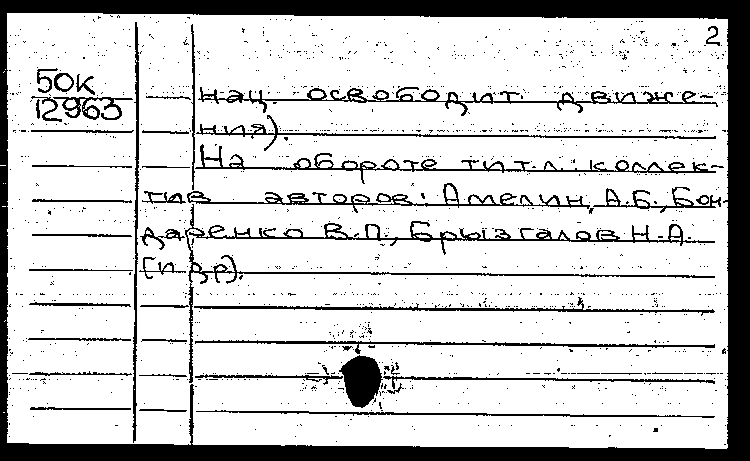 2
50К
12963
нац. освободит. движе-
ния).
На обороте тит.л.: коллек-
тив авторов: Амелин, А.Б., Бон-
даренко В.П., Брызгалов Н.А.
[и др].